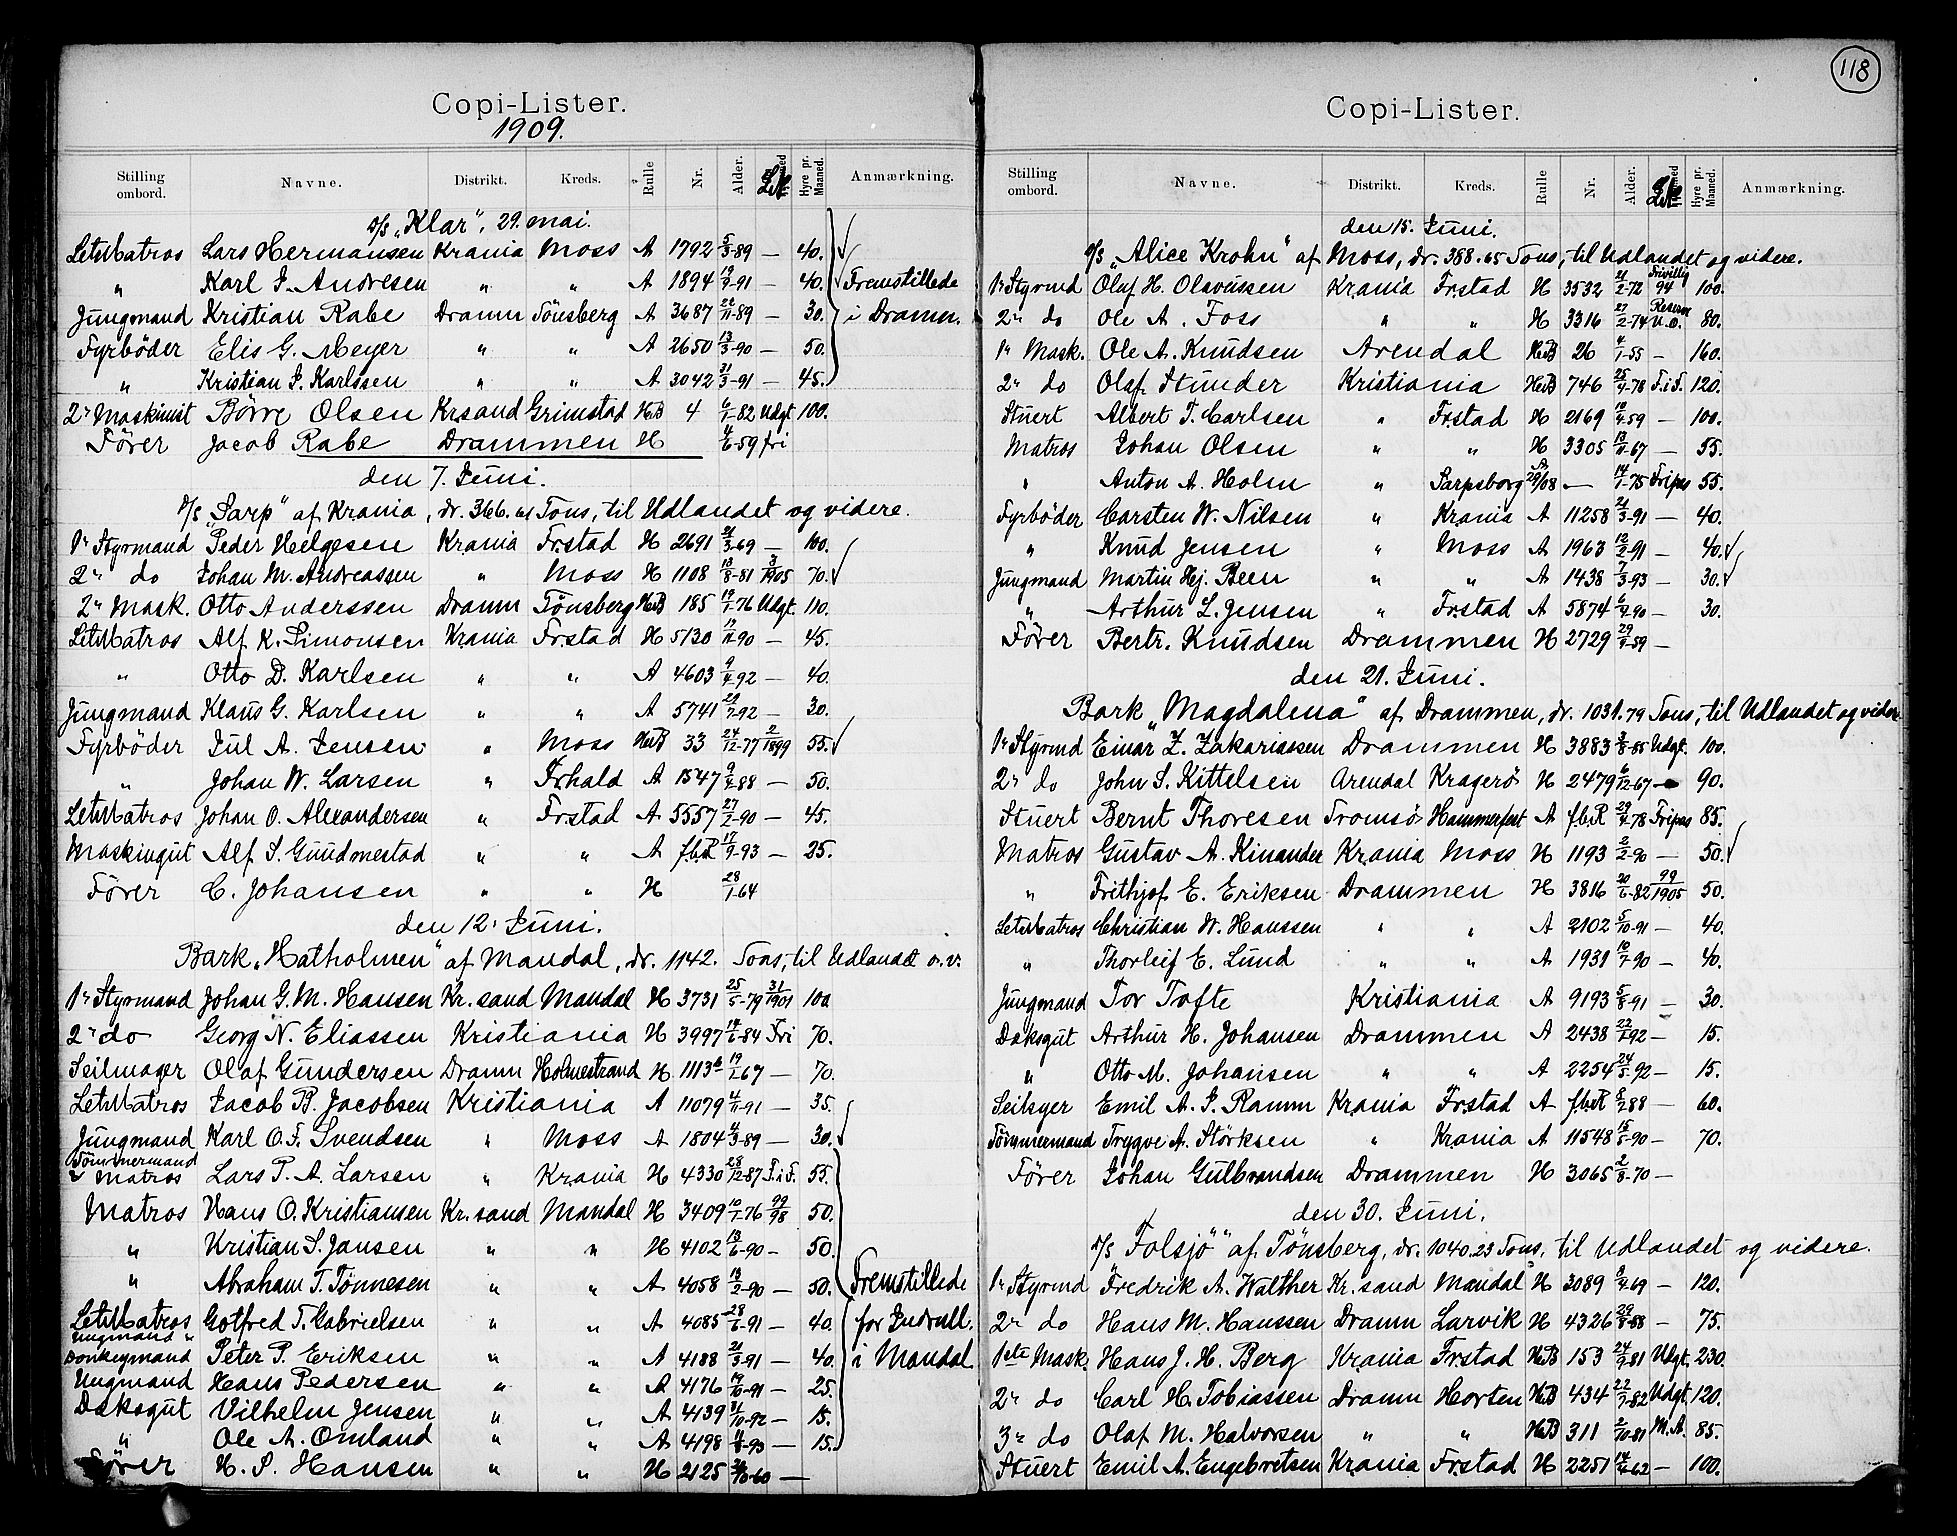 Copi-Lister.
1909.
Stilling ombord. Navne. Distrikt. Kreds. Rulle Nr. Alder. Hyre pr. Maaned. Anmærkning.
s/s „Klar", 29. mai.
LetMatros Lars Hermansen Krania Moss A 1792 5/3-89 — 40.
" Karl J. Andresen " " A 1894 19/9-91 — 40. Fremstillede
Jungmand Kristian Rabe Dramn Tönsberg A 3687 22/11-89 — 30. i Dramn.
Fyrböder Elis G. Meyer " " A 2650 13/3-90 — 50.
" Kristian J. Karlssen " " A 3042 31/3-91 — 45.
2n Maskinist Börre Olsen Krsand Grimstad HB 4 6/1-82 Udgt. 100.
Förer Jacob Rabe Drammen H 4/6-59 fri
den 7. Juni.
s/s „Sarp" af Krania, dr. 366.61 Tons, til Udlandet og videre.
1n Styrmand Peder Helgesen Krania Frstad H 2691 21/3-69 — 100.
2n do Johan M. Andreassen " Moss H 1108 13/8-81 3/1905 70.
2n Mask. Otto Anderssen Dramn Tönsberg HB 185 19/1-76 Udgt. 110.
LetMatros Alf K. Simonsen Krania Frstad H 5130 17/11-90 — 45.
" Otto D. Karlsen " " A 4603 9/4-92 — 40.
Jungmand Klaus G. Karlsen " " A 5741 29/7-92 — 30.
Fyrböder Jul A. Jensen " Moss HB 33 24/12-77 2/1899 55.
" Johan W. Larsen " Frhald A 1547 9/4-88 — 50.
LetMatros Johan O. Alexandersen " Frstad A 5557 27/2-90 — 45.
Maskingut Alf S. Guudmestad " " A f.b.R 17/9-93 — 25.
Förer C. Johansen " " H 28/1-64
den 12. Juni.
Bark „Hatholmen" af Mandal, dr. 1142. Tons, til Udlandet o.v.
1n Styrmand Johan G. M. Hansen Kr.sand Mandal H 3731 25/5-79 31/1901 100
2n do Georg N. Eliassen Kristiania H 3997 14/6-84 Fri 70.
Seilmager Olaf Gundersen Dramn Holmestrand H 1113b 19/1-67 — 70.
LetMatros Jacob B. Jacobsen Kristiania A 11079 4/11-91 — 35.
Jungmand Karl O. F. Svendsen " Moss A 1804 4/3-89 — 30.
Tömmermand & Matros Lars P. A. Larsen " Krania H 4330 28/12-87 F.i F. 55.
Matros Hans O. Kristiansen Kr.sand Mandal H 3409 10/1-76 99/98 50.
" Kristian S. Jansen " " H 4102 13/6-90 - 50.
" Abraham T. Tönnesen " " A 4058 13/2-90 — 50. Fremstillede
LetMatros Gotfred T. Gabrielsen " " A 4085 28/6-91 — 40. for Indrull.
Jungmand " Donkeymand Peter P. Eriksen " " A 4188 21/3-91 — 40. i Mandal
Ungmand Hans Pedersen " " A 4176 19/10-91 — 25.
Dæksgut Vilhelm Jensen " " A 4139 31/10-92 — 15.
" Ole A. Omland " " A 4198 11/8-93 — 15.
Förer H. S. Hansen " " H 2125 /10-60 —
118
Copi-Lister.
Stilling ombord. Navne. Distrikt. Kreds. Rulle Nr. Alder. Hyre pr. Maaned. Anmærkning.
den 15. Juni.
s/s „Alice Krohn" af Moss, dr. 388.65 Tons, til Udlandet og videre.
1n Styrmd Oluf H. Olavussen Krania Frstad H 3532 21/2-72 Frivillig 94 100.
2n do Ole A. Foss " " H 3316 27/2-74 Reserve U.O. 80.
1n Mask. Ole A. Knudsen Arendal HB 26 4/1-55 — 160.
2n do Olaf Stunder Kristiania HB 746 25/9-78 F.i F. 120.
Stuert Albert T. Carlsen " Frstad H 2169 10/4-59 — 100.
Matros Johan Olsen " " H 3305 13/11-67 — 55.
" Anton A. Holm " Sarpsborg 29/08 — 14/1-75 Fripas 55.
Fyrböder Carsten W. Nilsen " Krania A 11258 21/3-91 — 40.
" Knud Jensen " Moss A 1963 12/2-91 — 40.
Jungmand Martin Hj. Been " " A 1438 7/3-93 — 30.
" Arthur L. Jensen " Frstad A 5874 6/9-90 — 30.
Förer Bertr. Knudsen Drammen H 2729 29/9-59 —
den 21. Juni.
Bark „Magdalena" af Drammen, dr. 1031.79 Tons, til Udlandet og videre
1n Styrmd Einar Z. Zakariassen Drammen H 3883 3/8-85 Udgt. 100.
2n do John S. Kittelsen Arendal Kragerö H 2479 6/12-67 — 90.
Stuert Bernt Thoresen Tromsö Hammerfest A f.b.R 29/9-78 Fripas 85.
Matros Gustav A. Kinander Krania Moss H 1193 2/2-90 — 50.
" Frithjof E. Eriksen Drammen H 3816 20/6-82 99/1905 50.
LetMatros Christian W. Hanssen " " A 2102 5/10-91 — 40.
" Thorleif E. Lund " " A 1931 10/7-90 — 40.
Jungmand Tor Tofte Kristiania A 9193 5/8-91 — 30.
Dæksgut Arthur H. Johansen Drammen A 2438 22/7-92 — 15.
" Otto M. Johansen " " A 2254 24/5-92 — 15.
Seilsyer Emil A. J. Ramm Krania Frstad A f.b.R 8/2-88 — 60.
Tömmermand Trygve A. Störksen " Krania A 11548 15/8-90 — 70.
Förer Johan Gulbrandsen Drammen H 3065 2/8-70 —
den 30. Juni.
s/s „Folsjö" af Tönsberg, dr. 1040.23 Tons, til Udlandet og videre.
1n Styrmd Fredrik A. Walther Kr.sand Mandal H 3089 8/9-69 — 120.
2n do Hans M. Hanssen Dramn Larvik H 4326 29/8-88 — 75.
1ste Mask. Hans J. H. Berg Krania Frstad HB 153 24/9-81 Udgt. 230.
2n do Carl H. Tobiassen Dramn Horten HB 434 22/7-82 Udgt. 120.
3n do Olaf M. Halvorsen " " HB 311 2/10-81 M.A. 85.
Stuert Emil A. Engebretsen Krania Frstad H 2251 14/4-62 — 100.